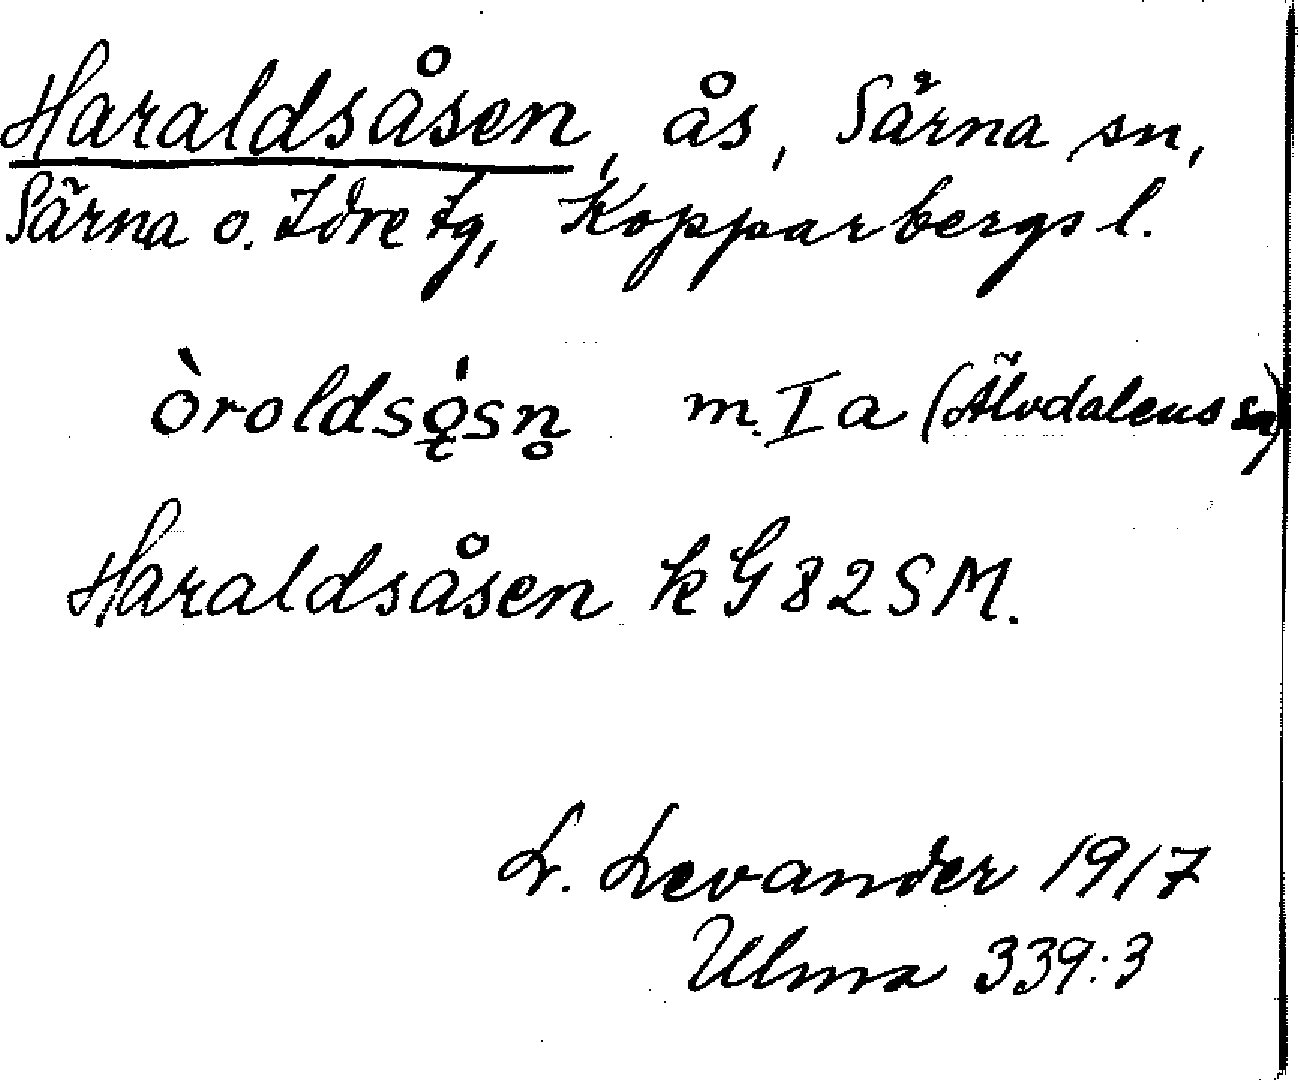 Haraldsåsen, ås, Särna sn,
Särna o. Idre tg, Kopparbergs l.
òroldsǫ̍sn̥ m. I a (Älvdalens sn)
Haraldsåsen k G 82 SM.
L. Levander 1917
Ulma 339:3